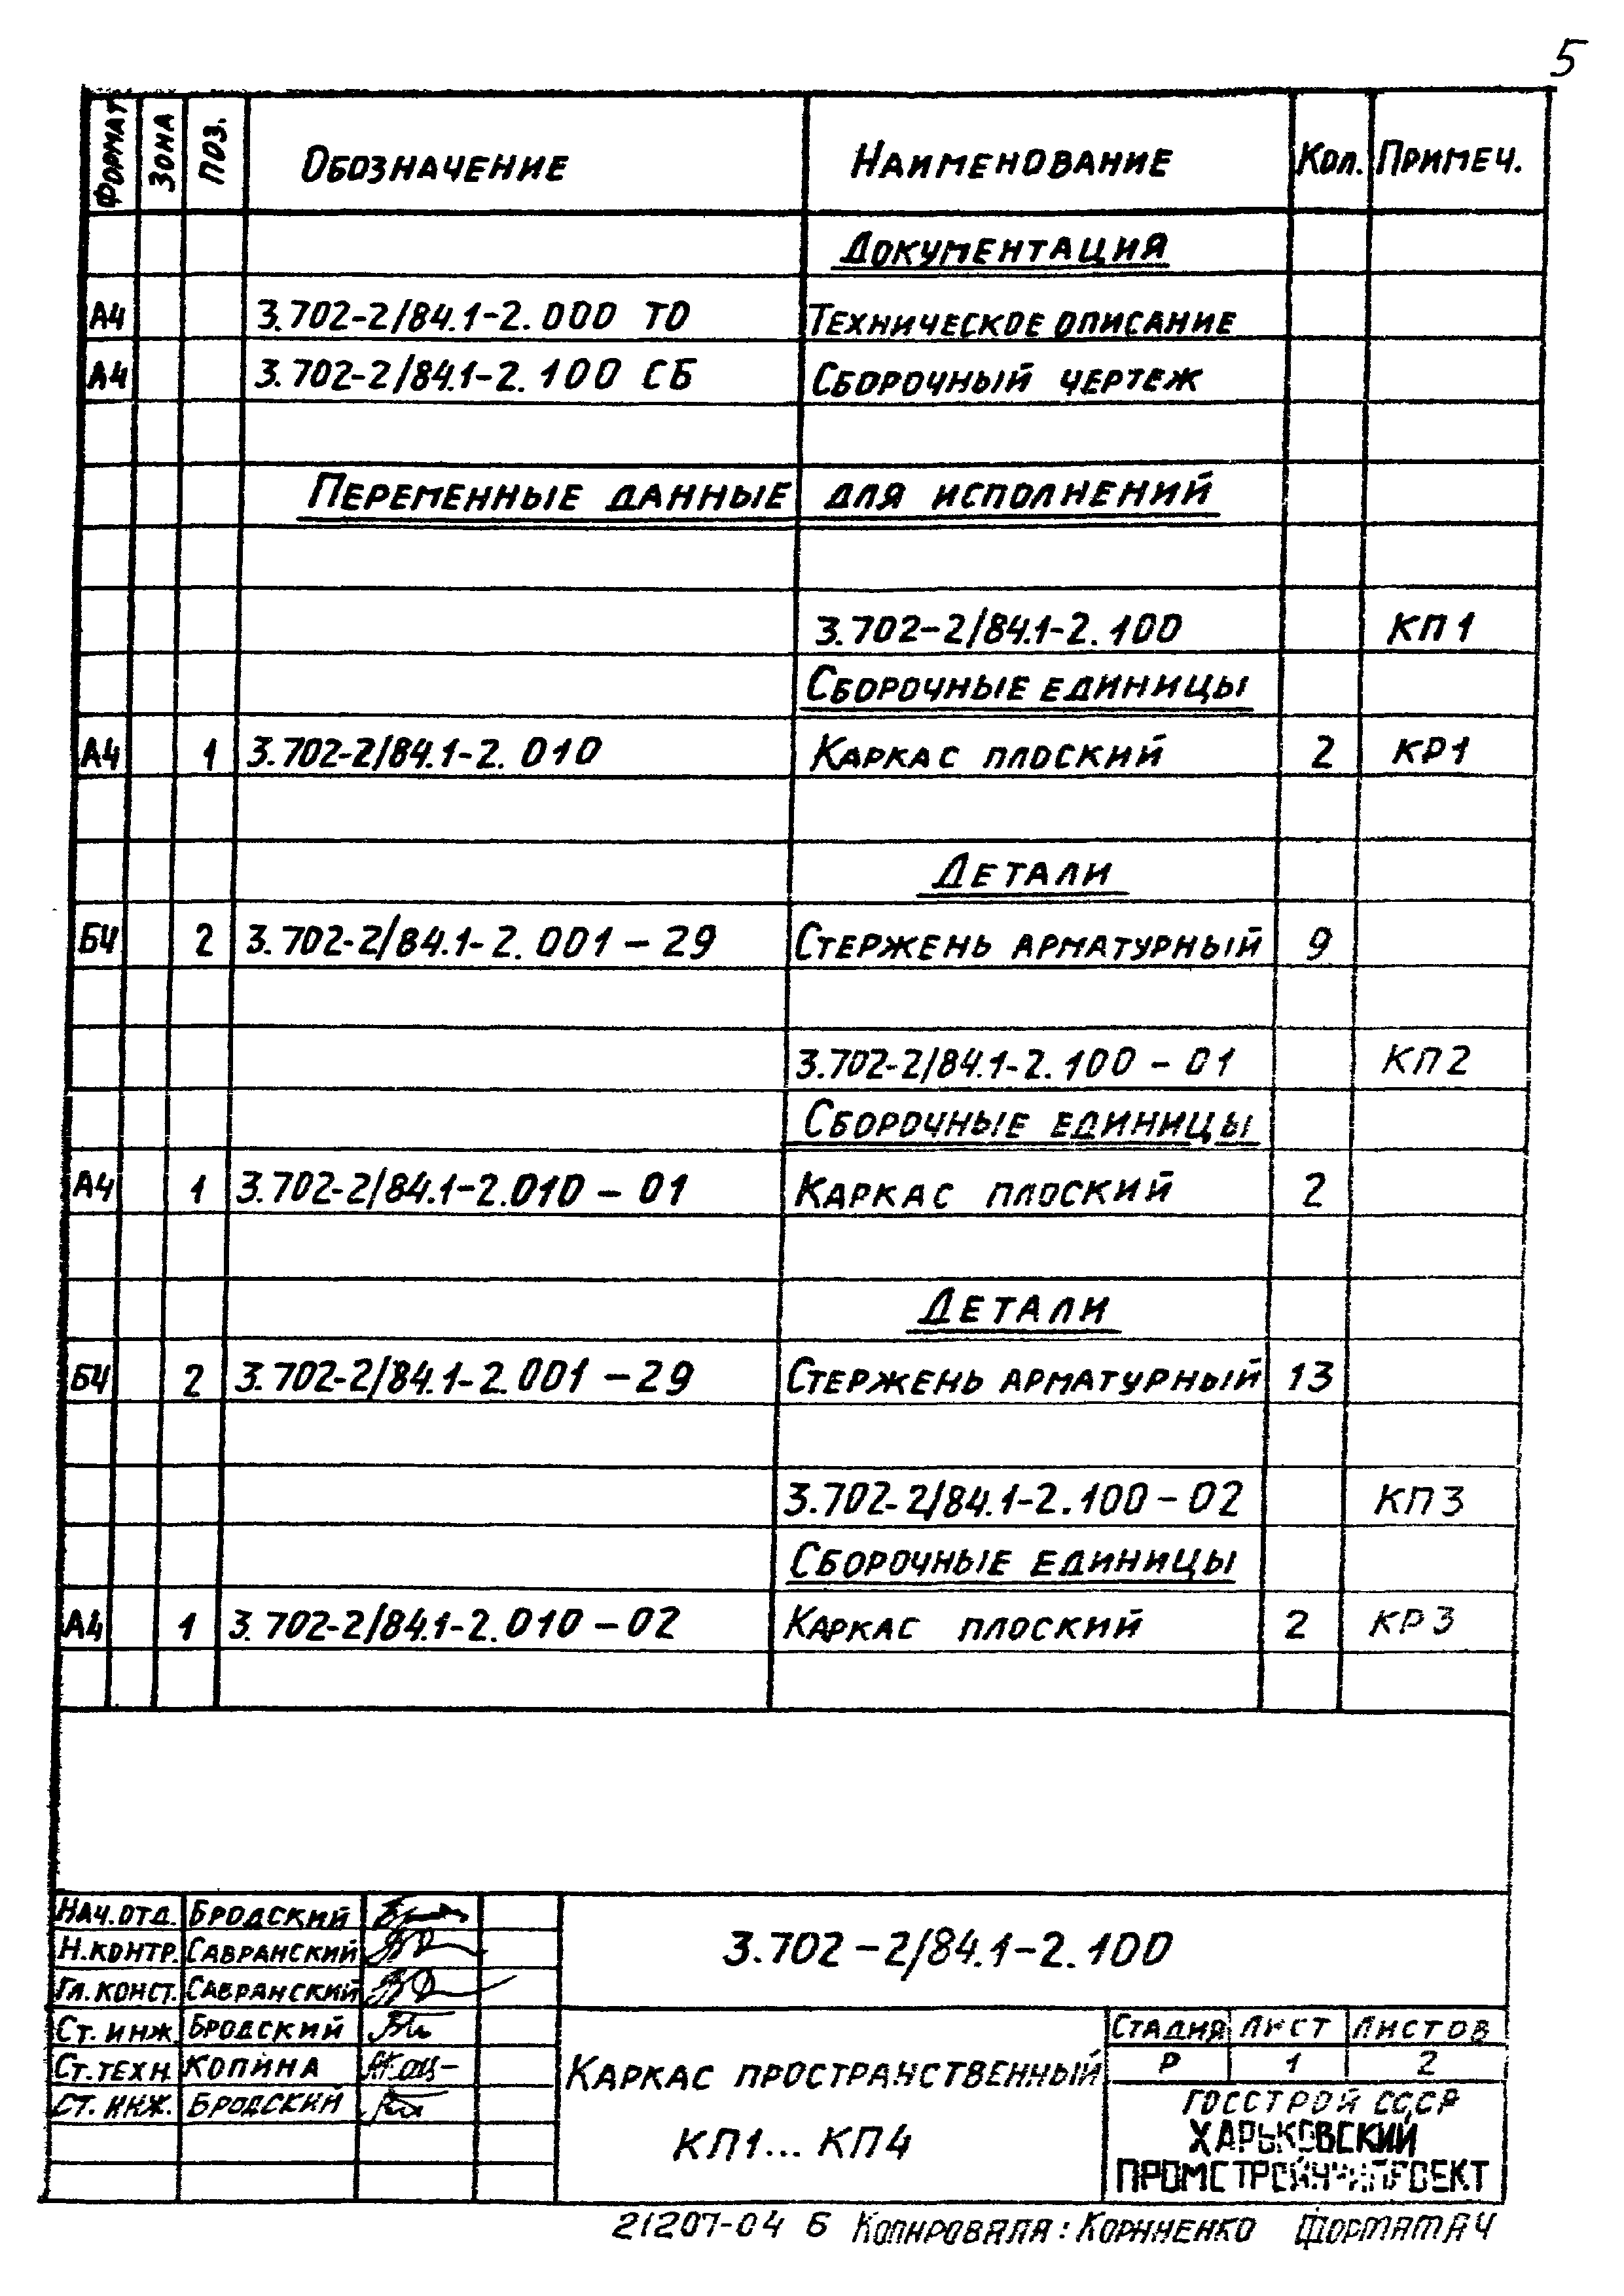 5
Формат Зона Поз. Обозначение Наименование Кол. Примеч.
Документация
А4 3.702-2/84.1-2.000 ТО Техническое описание
А4 3.702-2/84.1-2.100 СБ Сборочный чертеж
Переменные данные для исполнений
3.702-2/84.1-2.100 КП1
Сборочные единицы
А4 1 3.702-2/84.1-2.010 Каркас плоский 2 КР1
Детали
Б4 2 3.702-2/84.1-2.001-29 Стержень арматурный 9
3.702-2/84.1-2.100-01 КП2
Сборочные единицы
А4 1 3.702-2/84.1-2.010-01 Каркас плоский 2
Детали
Б4 2 3.702-2/84.1-2.001-29 Стержень арматурный 13
3.702-2/84.1-2.100-02 КП3
Сборочные единицы
А4 1 3.702-2/84.1-2.010-02 Каркас плоский 2 КР3
Нач.отд. Бродский
Н.контр. Савранский
Гл.конст. Савранский
Ст.инж. Бродский
Ст.техн. Копина
Ст.инж. Бродский
3.702-2/84.1-2.100
Каркас пространственный
КП1...КП4
Стадия Лист Листов
Р 1 2
Госстрой СССР
ХАРЬКОВСКИЙ
ПРОМСТРОЙНИИПРОЕКТ
21207-04 6 Копировала: Корниенко Формат А4